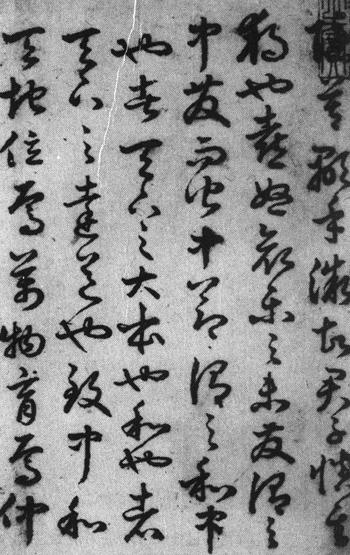 莫顯乎微故君子慎其
獨也喜怒哀樂之未發謂之
中發而皆中節謂之和中
也者天下之大本也和也者
天下之達道也致中和
天地位焉萬物育焉仲